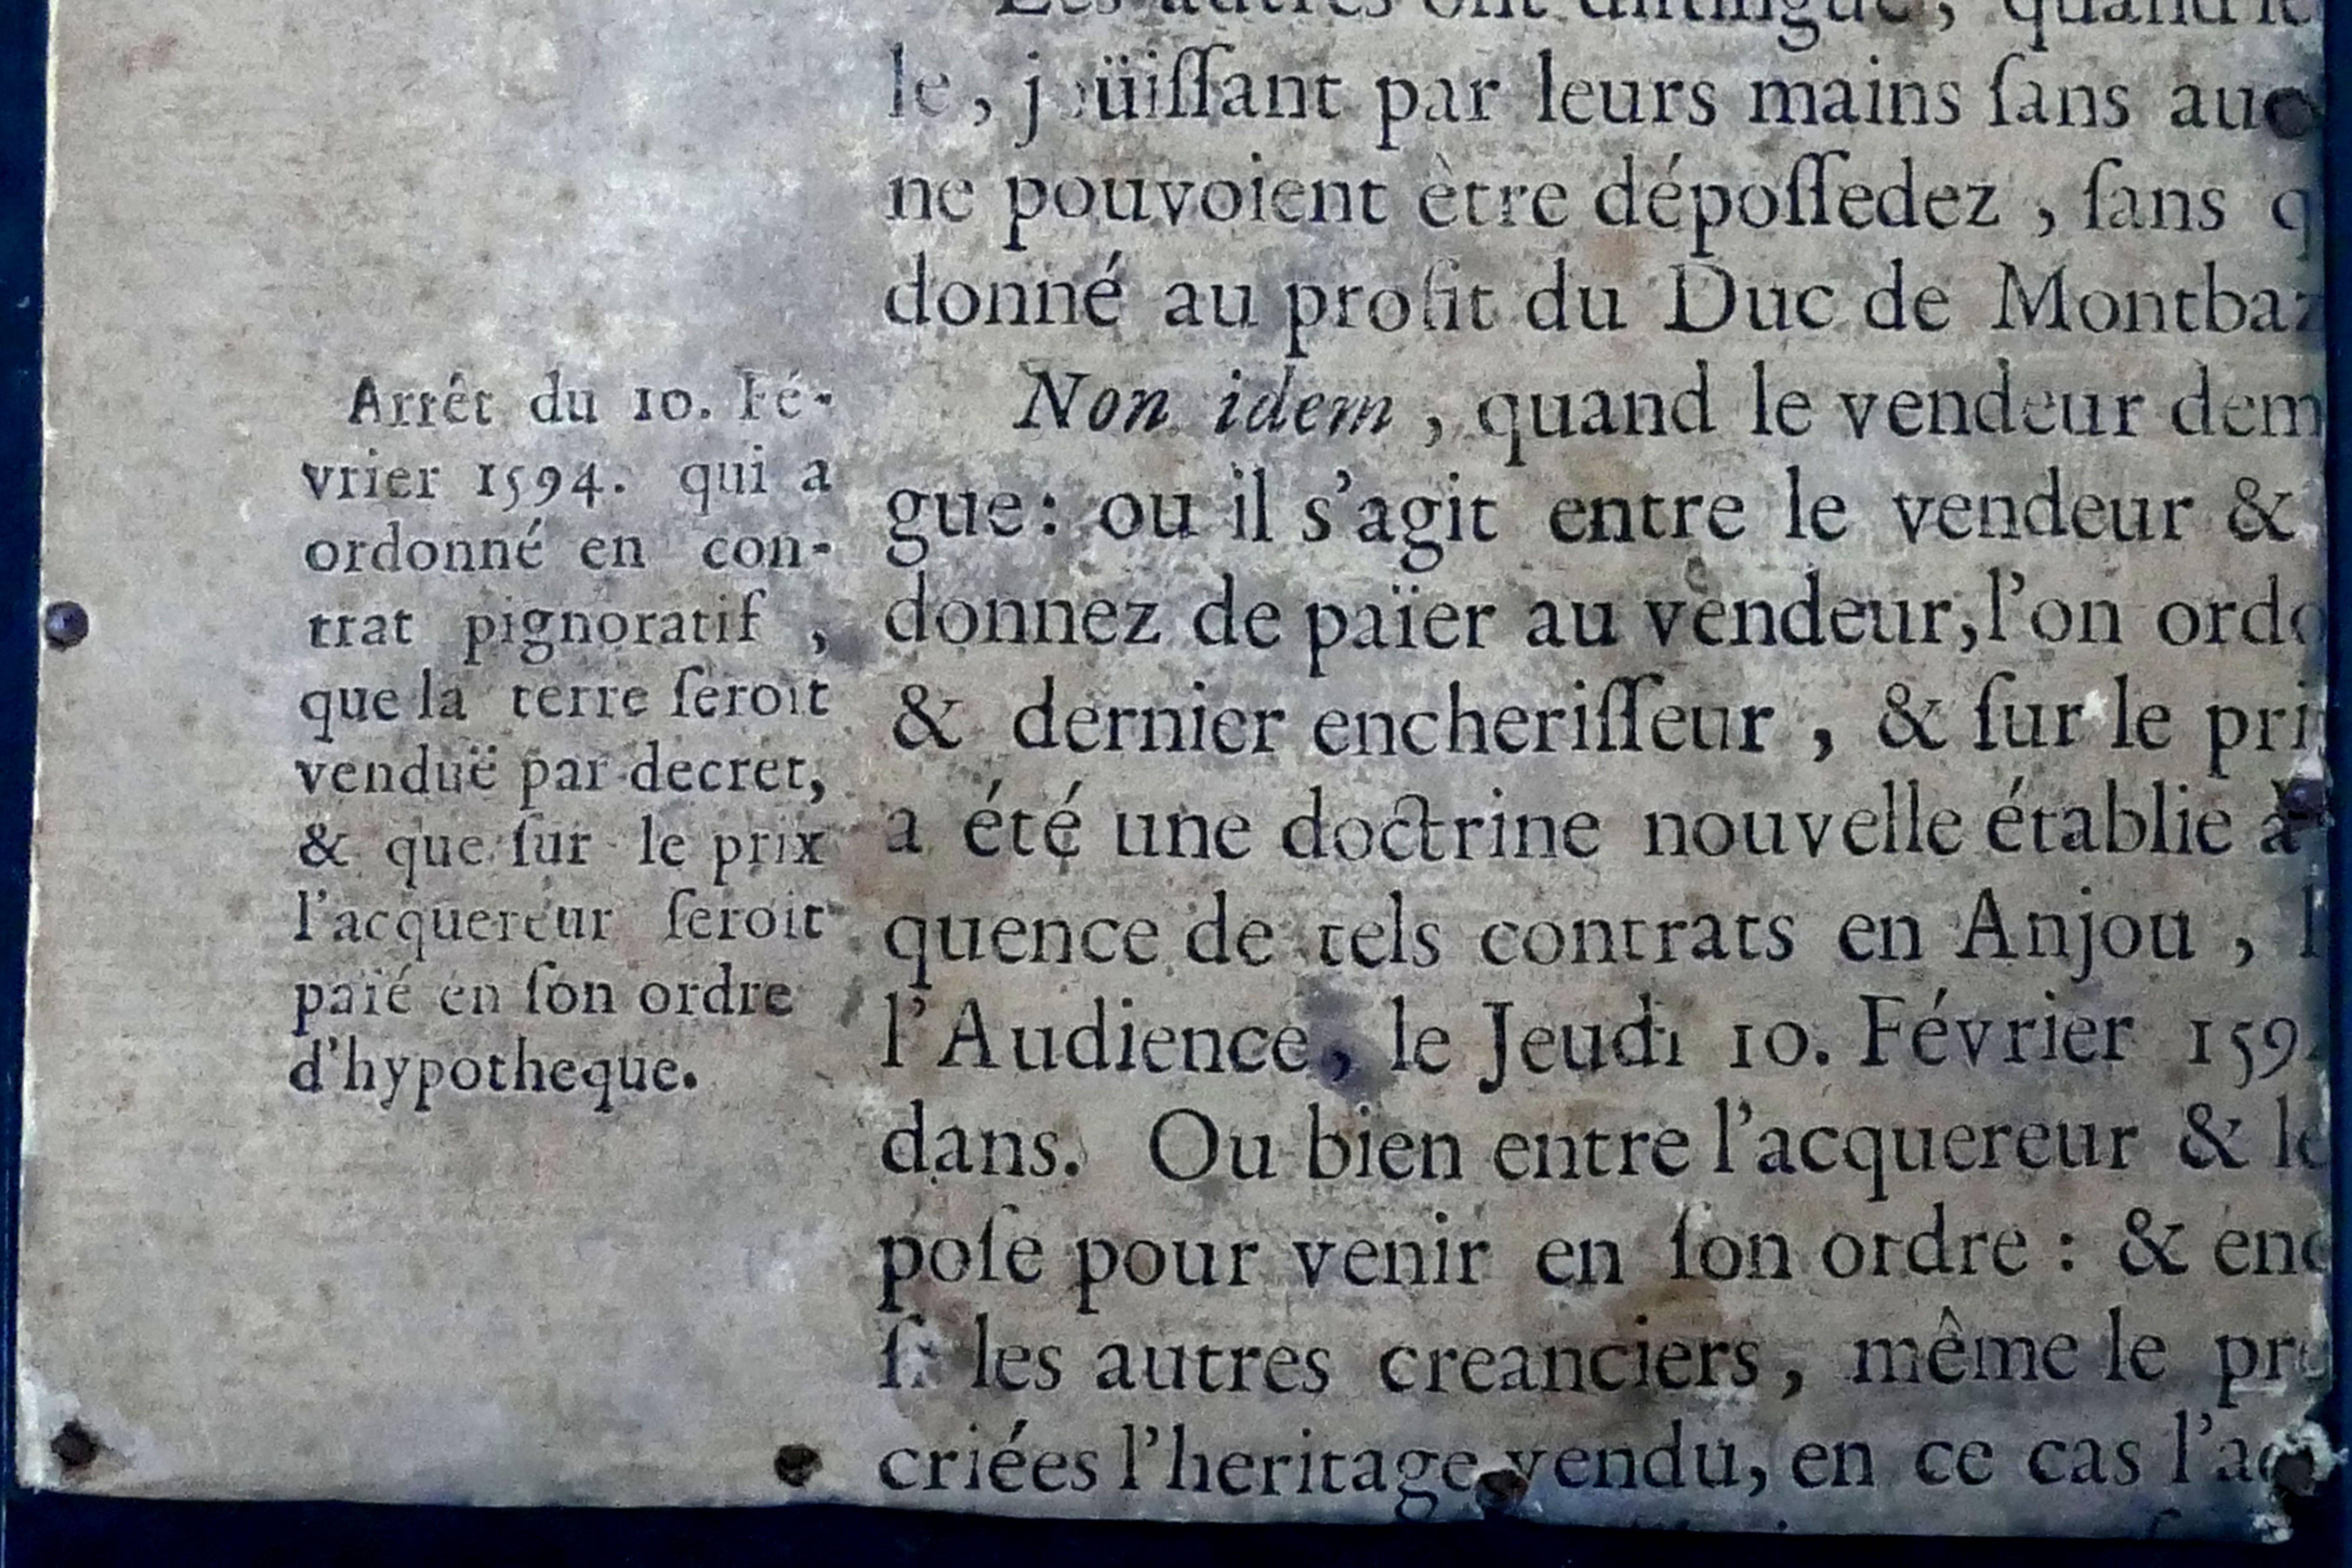 Arrêt du 10. Fé-
vrier 1594. qui a
ordonné en con-
trat pignoratif ,
que la terre ſeroit
venduë par decret,
& que ſur le prix
l'acquereur ſeroit
païé en ſon ordre
d'hypotheque.
Les autres ont diſtingué , quand
le , joüiſſant par leurs mains ſans
ne pouvoient être dépoſſedez , ſans
donné au profit du Duc de
Non idem , quand le vendeur
gue : ou il s'agit entre le vendeur &
donnez de païer au vendeur, l'on
& dernier encheriſſeur , & ſur le
a été une doctrine nouvelle établie à
quence de tels contrats en Anjou ,
l'Audience , le Jeudi 10. Février 159
dans. Ou bien entre l'acquereur &
poſe pour venir en ſon ordre : &
les autres creanciers , même le
criées l'heritage vendu, en ce cas